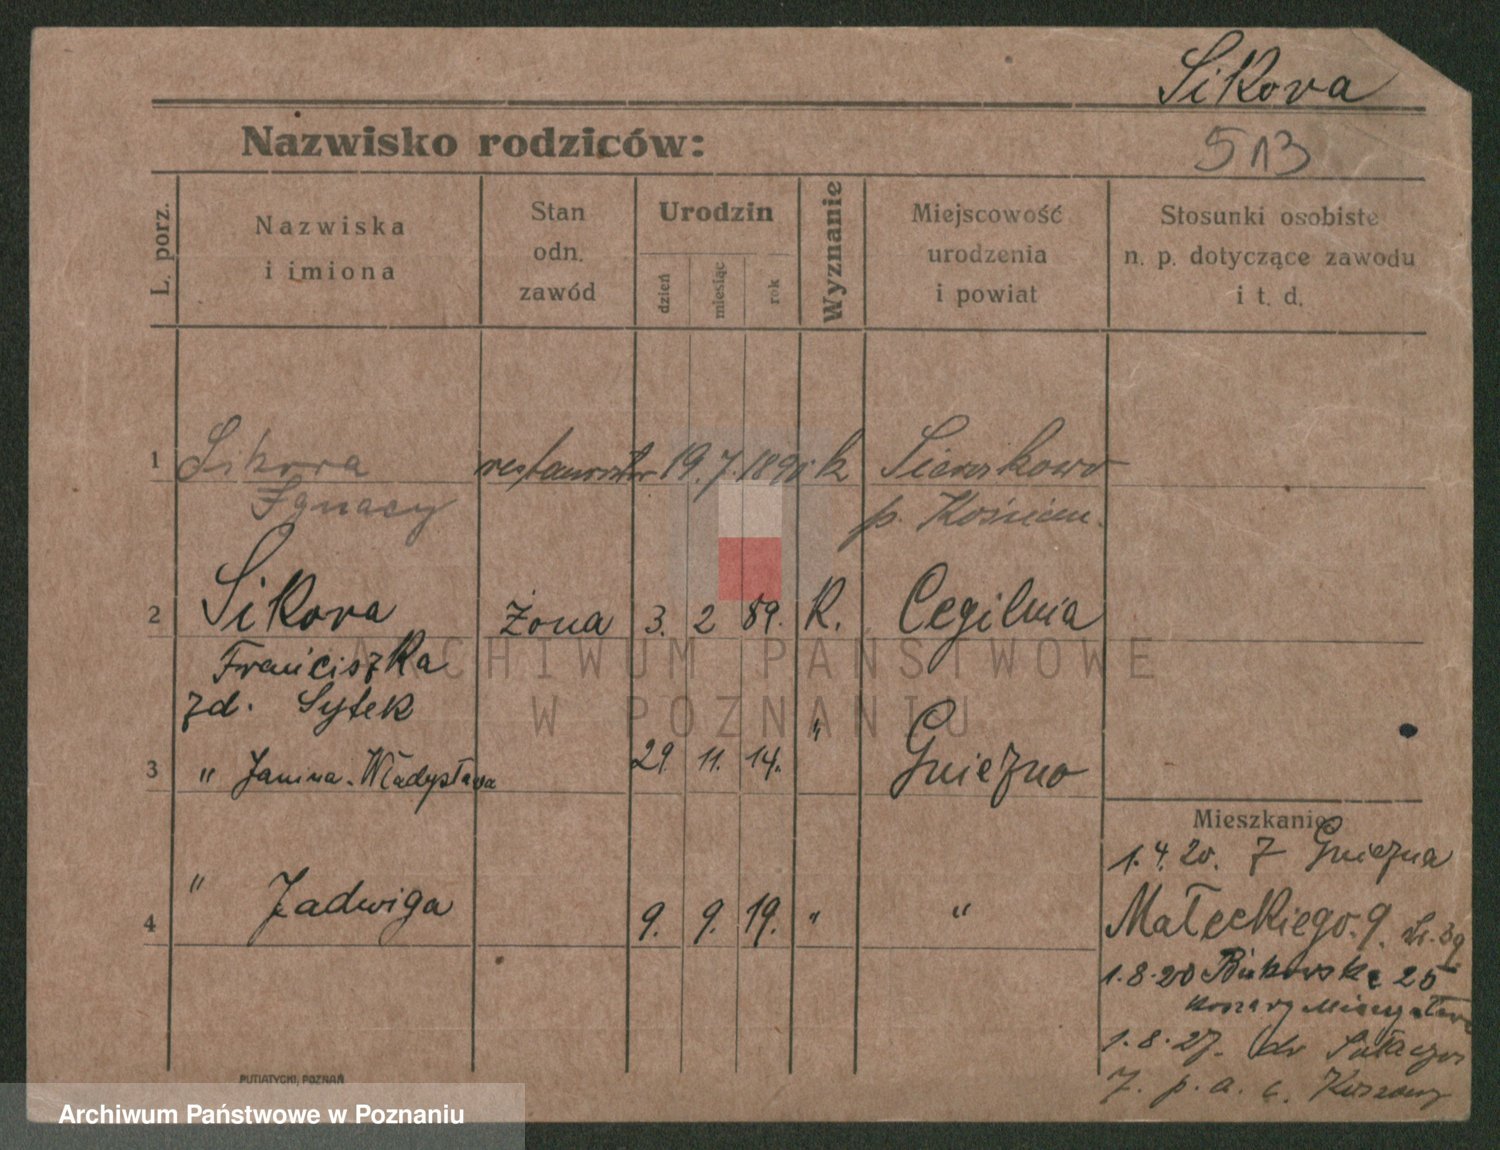 Sikora
Nazwisko rodziców:
513
L. porz.
Nazwiska
i imiona
Stan
odn.
zawód
Urodzin
dzień
miesiąc
rok
Wyznanie
Miejscowość
urodzenia
i powiat
Stosunki osobiste
n. p. dotyczące zawodu
i t. d.
1 Sikora 19. 7. k
Ignacy p.
2 Sikora żona 3. 2 89. K. Cegilnia
Franciszka
zd. Sytek
ARCHIWUM PAŃSTWOWE
W POZNANIU
3 " Janina. Władysława 29. 11. 14. " Gniezno
Mieszkanie
1.4.20. z Gniezna
4 " Jadwiga 9. 9. 19. " "
Małeckiego. 9.
1.8.20 Bukowska 25
1.8.27.
PUTIATYCKI, POZNAŃ
Archiwum Państwowe w Poznaniu